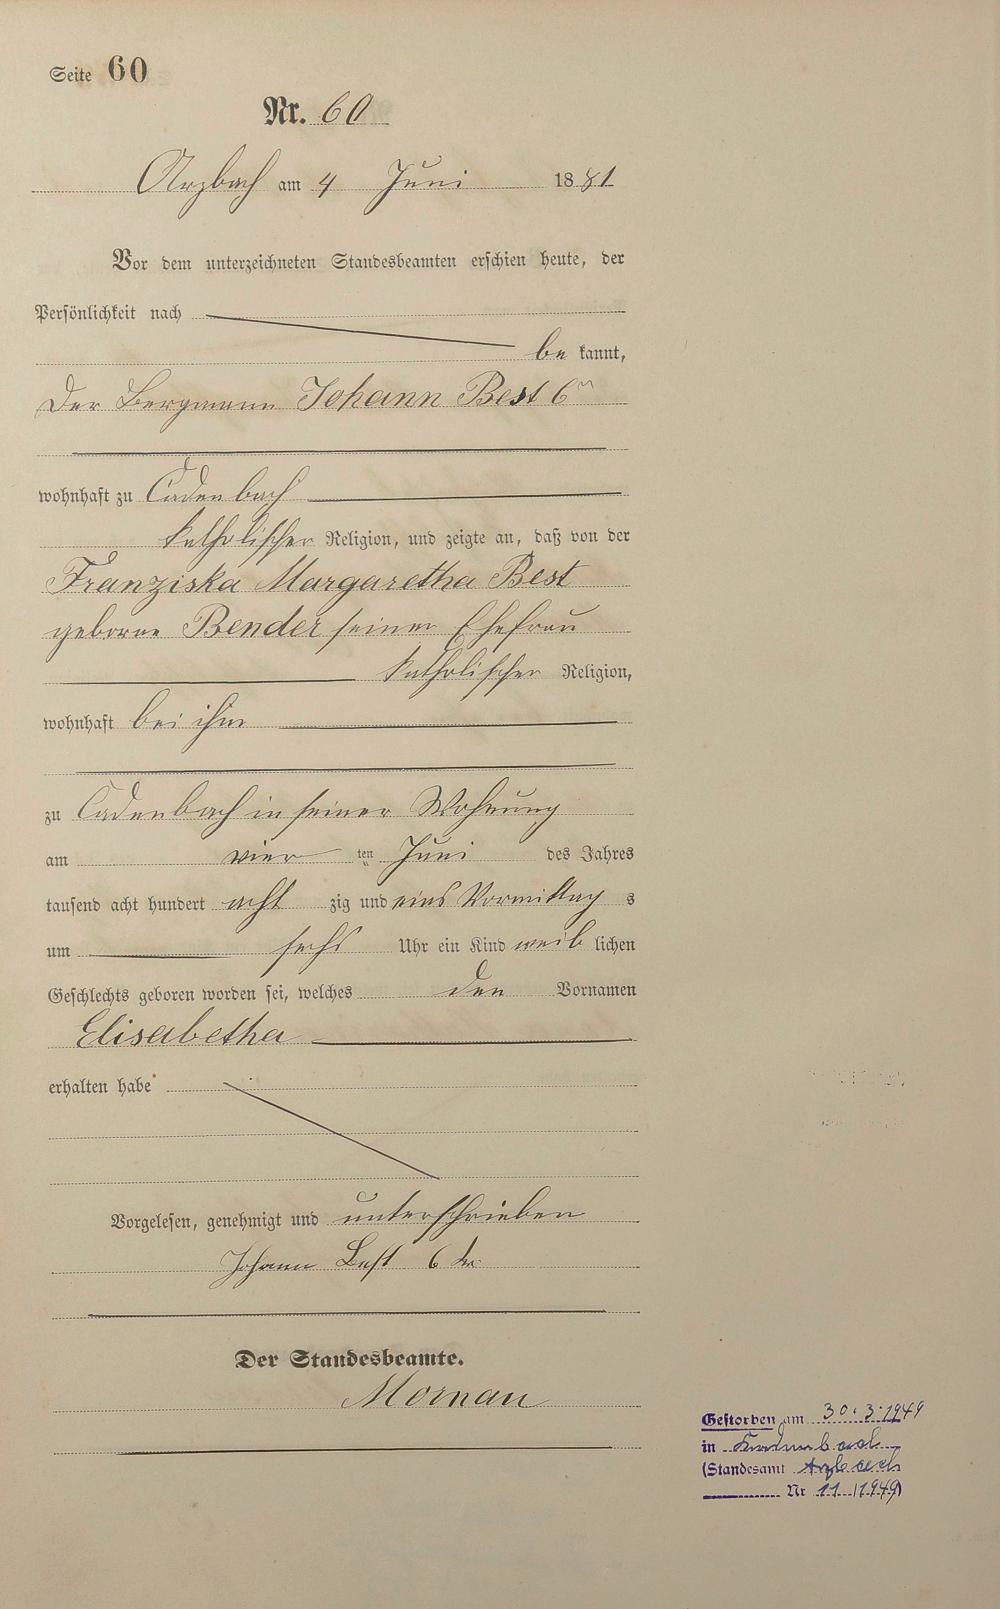 Seite 60
Nr. 60
Arzbach am 4 Juni 1881
Vor dem unterzeichneten Standesbeamten erschien heute, der
Persönlichkeit nach
be kannt,
Der Bergmann Johann Best 6r
wohnhaft zu Cadenbach
katholischer Religion, und zeigte an, daß von der
Franziska Margaretha Best
geborne Bender seiner Ehefrau
katholischer Religion,
wohnhaft bei ihm
zu Cadenbach in seiner Wohnung
am vier ten Juni des Jahres
tausend acht hundert acht zig und eins Vormittag s
um sechs Uhr ein Kind weib lichen
Geschlechts geboren worden sei, welches den Vornamen
Elisabetha
erhalten habe
Vorgelesen, genehmigt und unterschrieben
Johann Best 6 ter
Der Standesbeamte.
Mornau
Gestorben am 30.3.1949
in Kadenbach
(Standesamt Arzbach
Nr 11 /1949)